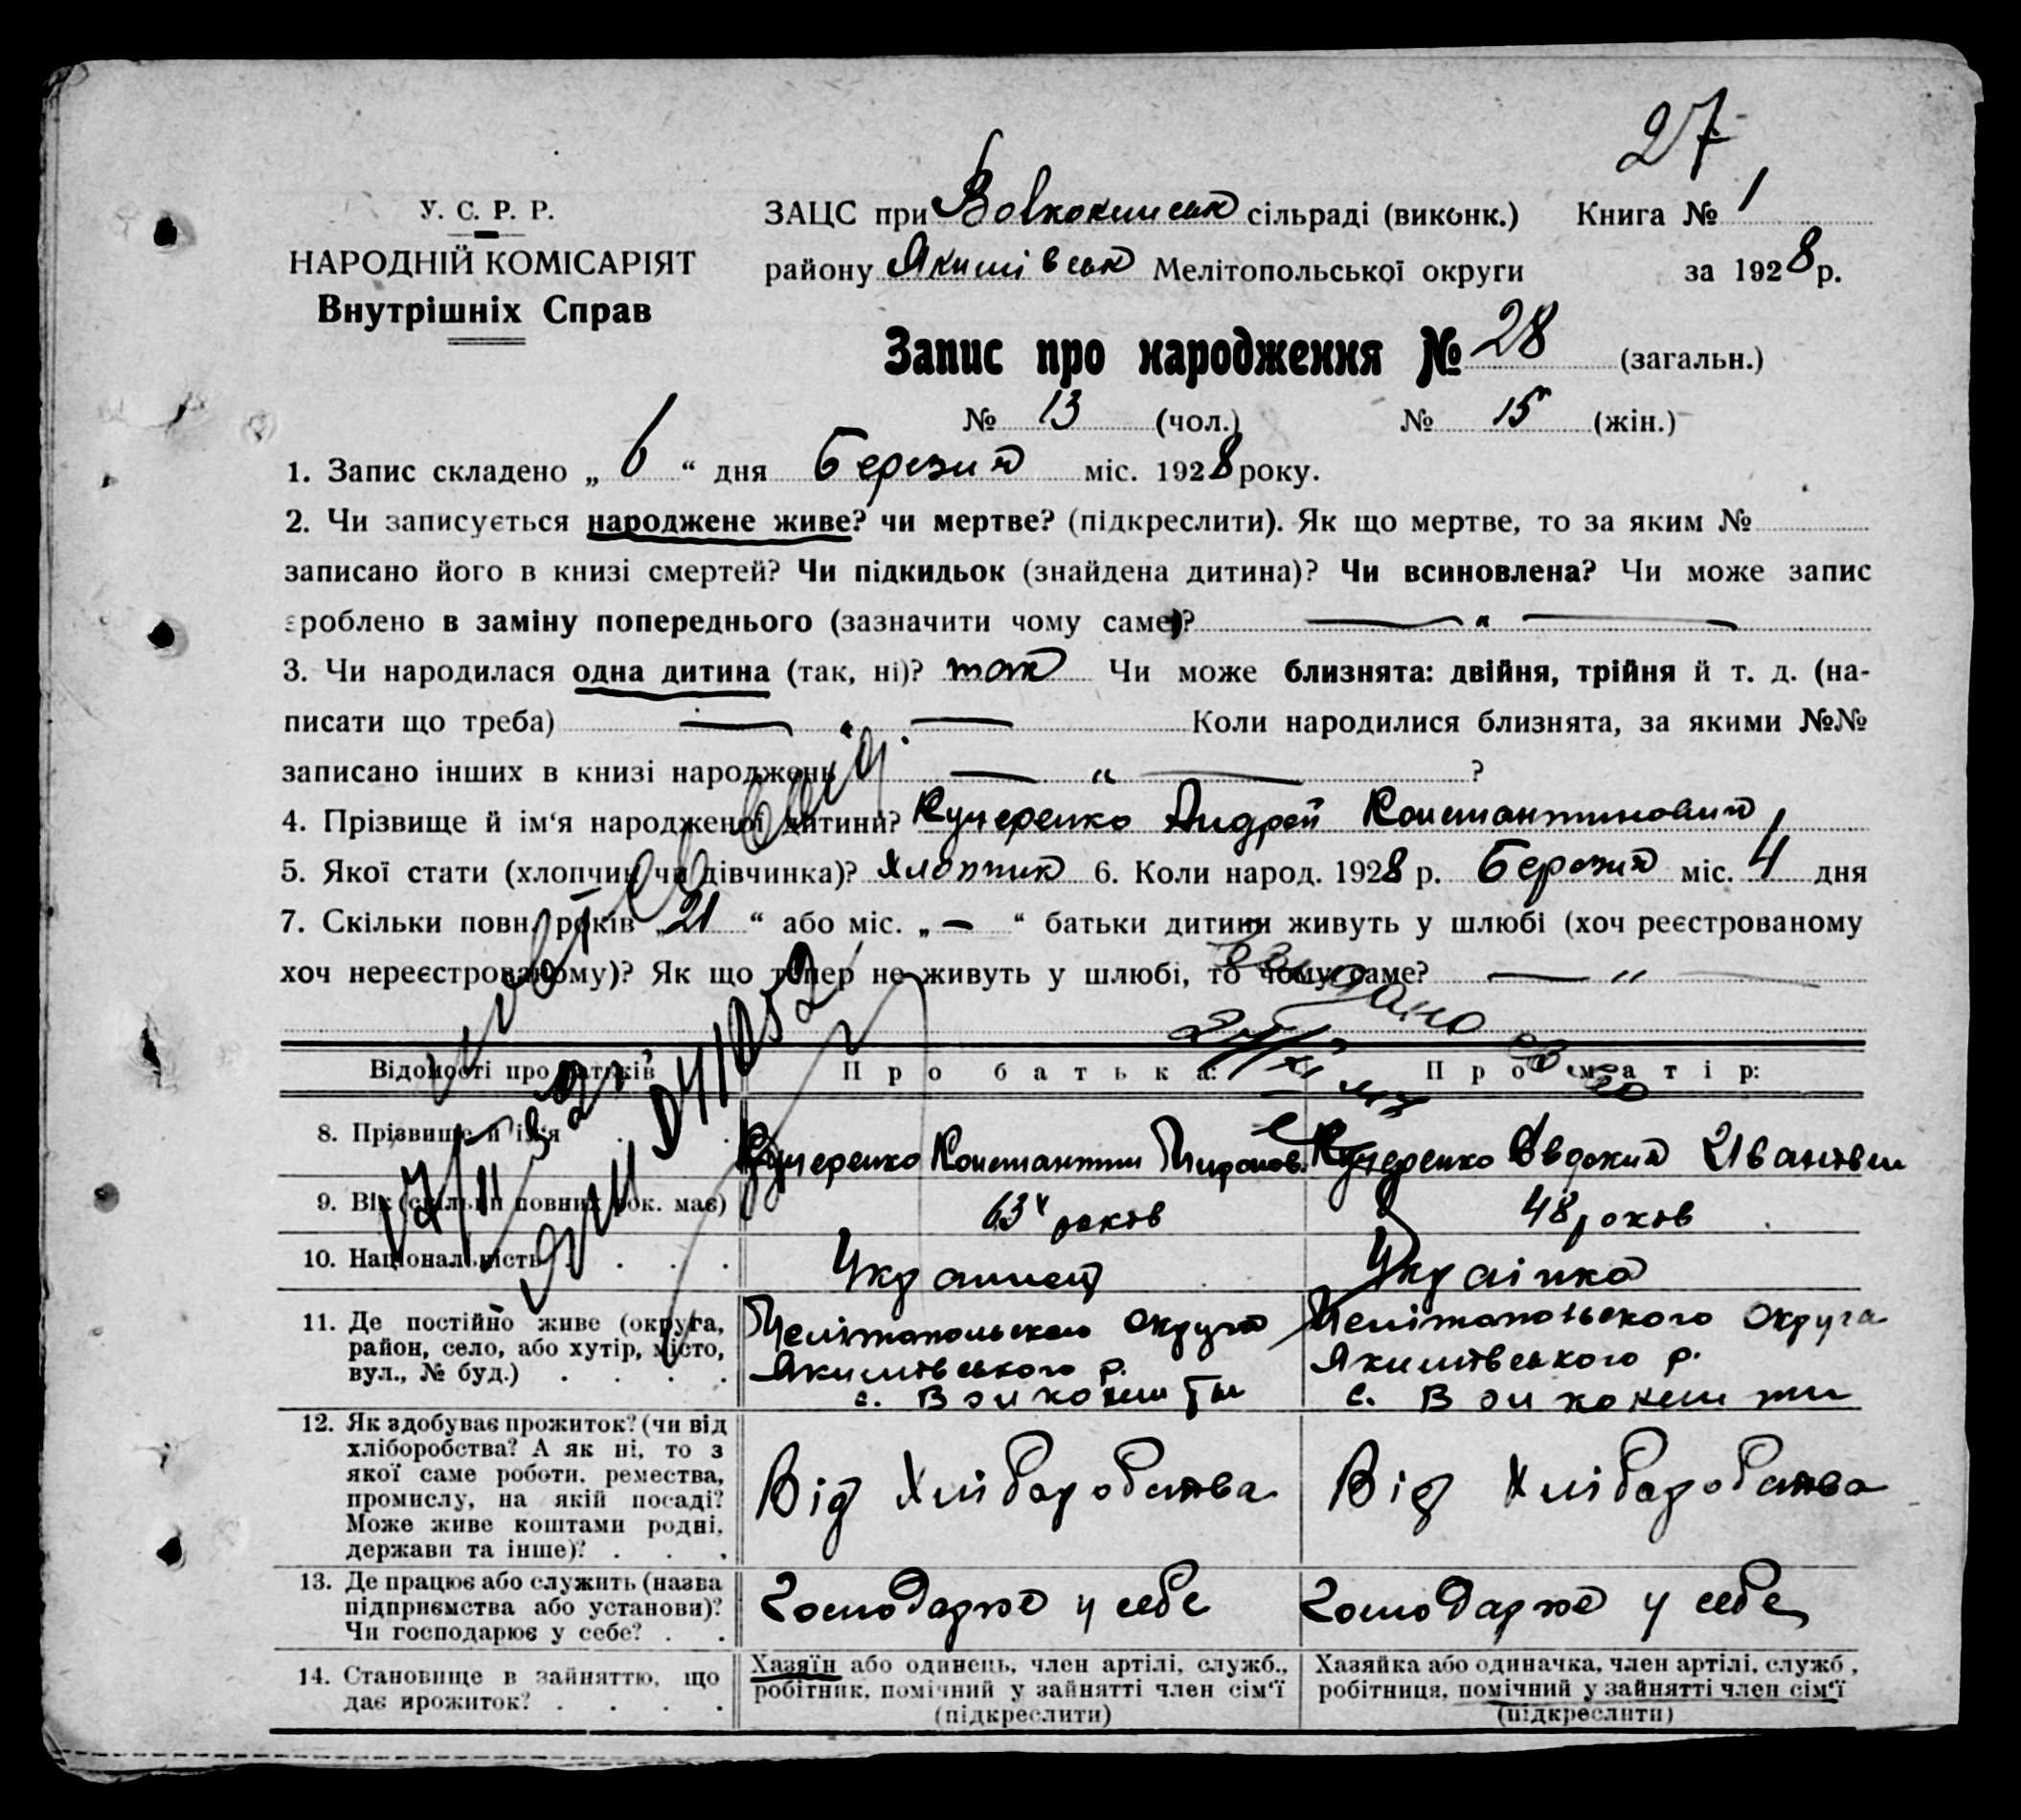 27
У. С. Р. Р.
НАРОДНІЙ КОМІСАРІЯТ
Внутрішніх Справ
ЗАЦС при сільраді (виконк.) Книга № 1
району Якимівськ Мелітопольської округи за 1928 р.
Запис про народження № 28 (загальн.)
№ 13 (чол.) № 15 (жін.)
1. Запис складено „ 6 “ дня Березня міс. 1928 року.
2. Чи записується народжене живе? чи мертве? (підкреслити). Як що мертве, то за яким №
записано його в книзі смертей? Чи підкидьок (знайдена дитина)? Чи всиновлена? Чи може запис
зроблено в заміну попереднього (зазначити чому саме)? — " —
3. Чи народилася одна дитина (так, ні)? так Чи може близнята: двійня, трійня й т. д. (на-
писати що треба) — " — Коли народилися близнята, за якими №№
записано інших в книзі народжень — " — ?
4. Прізвище й ім‘я народженої дитини? Кучеренко Андрей Константинович
5. Якої стати (хлопчик чи дівчинка)? Хлопчик 6. Коли народ. 1928 р. Березня міс. 4 дня
7. Скільки повн. років „ 21 “ або міс. „ — “ батьки дитини живуть у шлюбі (хоч реєстрованому
хоч нереєстрованому)? Як що тепер не живуть у шлюбі, то чому саме? — " —
Відомості про батьків Про батька: Про матір:
8. Прізвище й ім‘я Кучеренко Константин Миронов. Кучеренко Овдокия Ивановн
9. Вік (скільки повних рок. має) 63 років 48 років
10. Національність Украинец Українка
11. Де постійно живе (округа, район, село, або хутір, місто, вул., № буд.)
Мелітопольського округа Якимівського р. с.
Мелітопольського округа Якимівського р. с.
12. Як здобуває прожиток? (чи від хліборобства? А як ні, то з якої саме роботи, ремества, промислу, на якій посаді? Може живе коштами родні, держави та інше)?
Від Хліборобства Від Хліборобства
13. Де працює або служить (назва підприємства або установи)? Чи господарює у себе?
Господарює у себе Господарює у себе
14. Становище в зайняттю, що дає прожиток?
Хазяїн або одинець, член артілі, служб., робітник, помічний у зайнятті член сім‘ї (підкреслити)
Хазяйка або одиначка, член артілі, служб., робітниця, помічний у зайнятті член сім‘ї (підкреслити)